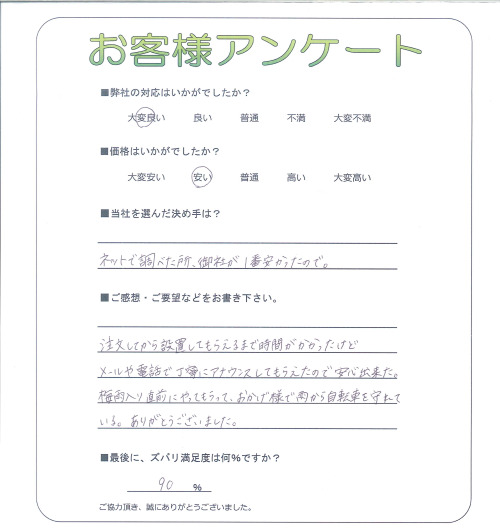 お客様アンケート
■弊社の対応はいかがでしたか？
大変良い 良い 普通 不満 大変不満
■価格はいかがでしたか？
大変安い 安い 普通 高い 大変高い
■当社を選んだ決め手は？
ネットで調べた所、御社が1番安かったので。
■ご感想・ご要望などをお書き下さい。
注文してから設置してもらえるまで時間がかかったけど
メールや電話で丁寧にアナウンスしてもらえたので安心出来た。
梅雨入り直前にやってもらって、おかげ様で雨から自転車を守れて
いる。ありがとうございました。
■最後に、ズバリ満足度は何%ですか？
90 %
ご協力頂き、誠にありがとうございました。